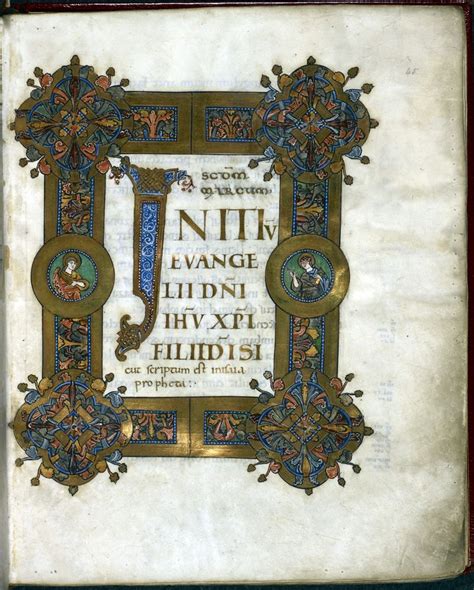 45
SCDM
MARCUM
INITIV
EVANGE
LII DÑI
IHV̄ XP̄I
FILII DĪ SI
cut scriptum est inisaia
propheta:·